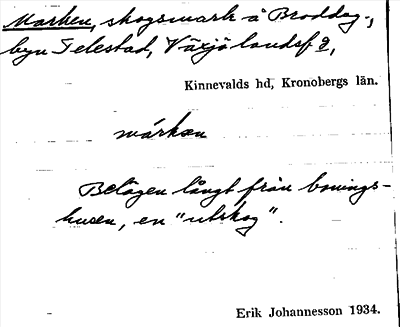 Marken, skogsmark å Broddag.,
byn Telestad, Växjö landsf 9,
Kinnevalds hd, Kronobergs län.
márkan
Belägen långt från bonings-
husen, en "utskog".
Erik Johannesson 1934.